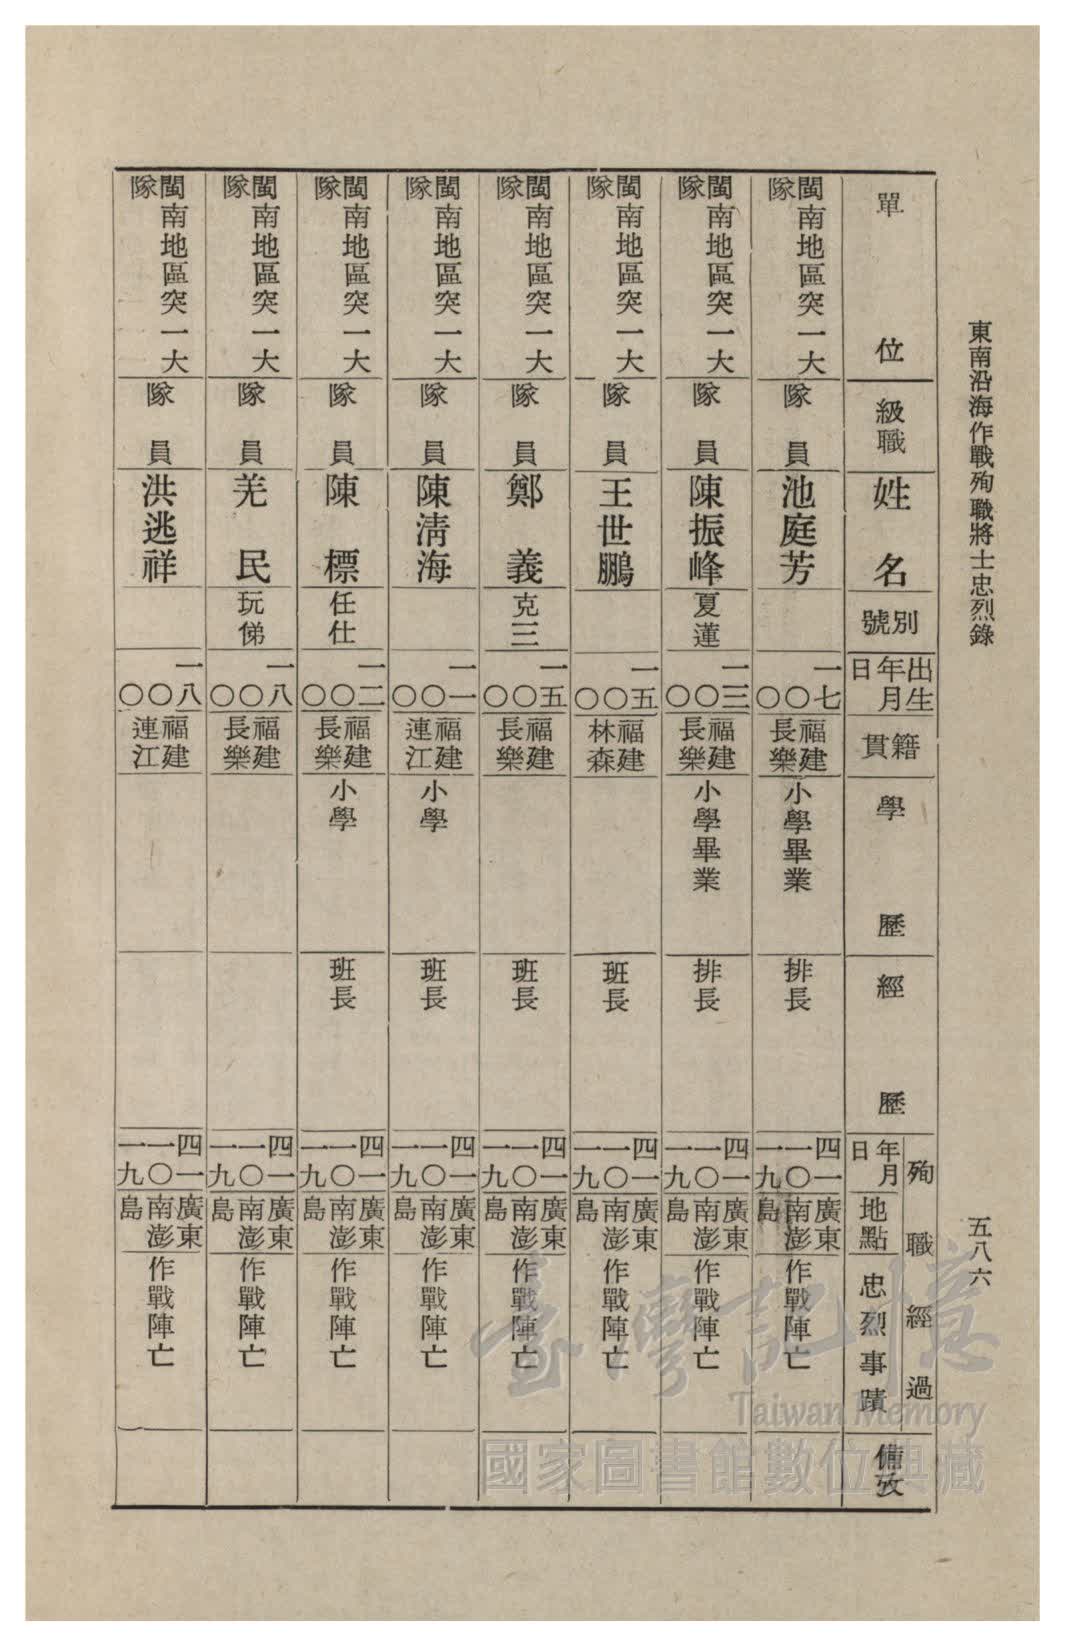 東南沿海作戰殉職將士忠烈錄
五八六
單位
級職
姓名
別號
出生年月日
籍貫
學歷
經歷
殉職經過
年月日
地點
忠烈事蹟
備攷
閩南地區突一大隊
隊員
池庭芳
一七〇〇
福建長樂
小學畢業
排長
四一一〇一九
廣東南澎島
作戰陣亡
閩南地區突一大隊
隊員
陳振峰
夏蓮
一三〇〇
福建長樂
小學畢業
排長
四一一〇一九
廣東南澎島
作戰陣亡
閩南地區突一大隊
隊員
王世鵬
一五〇〇
福建林森
班長
四一一〇一九
廣東南澎島
作戰陣亡
閩南地區突一大隊
隊員
鄭義
克三
一五〇〇
福建長樂
班長
四一一〇一九
廣東南澎島
作戰陣亡
閩南地區突一大隊
隊員
陳淸海
一一〇〇
福建連江
小學
班長
四一一〇一九
廣東南澎島
作戰陣亡
閩南地區突一大隊
隊員
陳標
任仕
一二〇〇
福建長樂
小學
班長
四一一〇一九
廣東南澎島
作戰陣亡
閩南地區突一大隊
隊員
羌民
玩俤
一八〇〇
福建長樂
四一一〇一九
廣東南澎島
作戰陣亡
閩南地區突一大隊
隊員
洪逃祥
一八〇〇
福建連江
四一一〇一九
廣東南澎島
作戰陣亡
臺灣記憶
Taiwan Memory
國家圖書館數位典藏